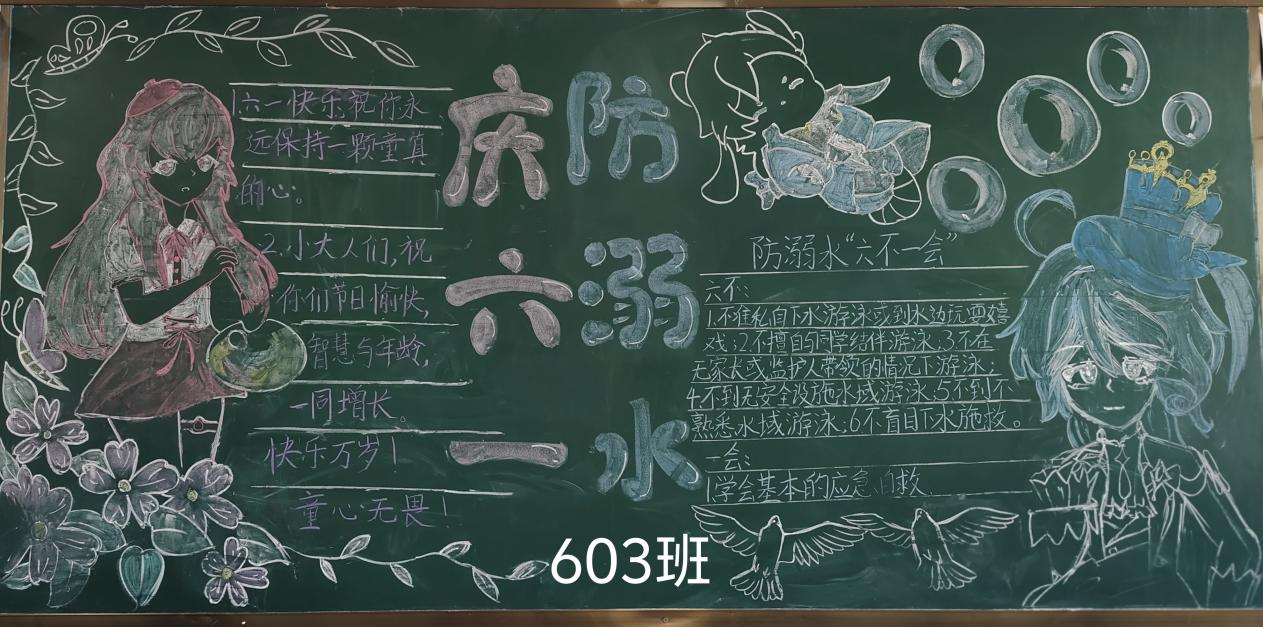 庆六一
防溺水
1六一快乐,祝你永
远保持一颗童真
的心。
2.小大人们,祝
你们节日愉快,
智慧与年龄,
一同增长。
快乐万岁!
童心无畏!
防溺水“六不一会”
六不:
1.不准私自下水游泳或到水边玩耍嬉
戏;2不擅自与同学结伴游泳.3不在
无家长或监护人带领的情况下游泳;
4不到无安全设施水域游泳;5不到不
熟悉水域游泳:6不盲目下水施救。
一会:
1学会基本的应急、自救
603班